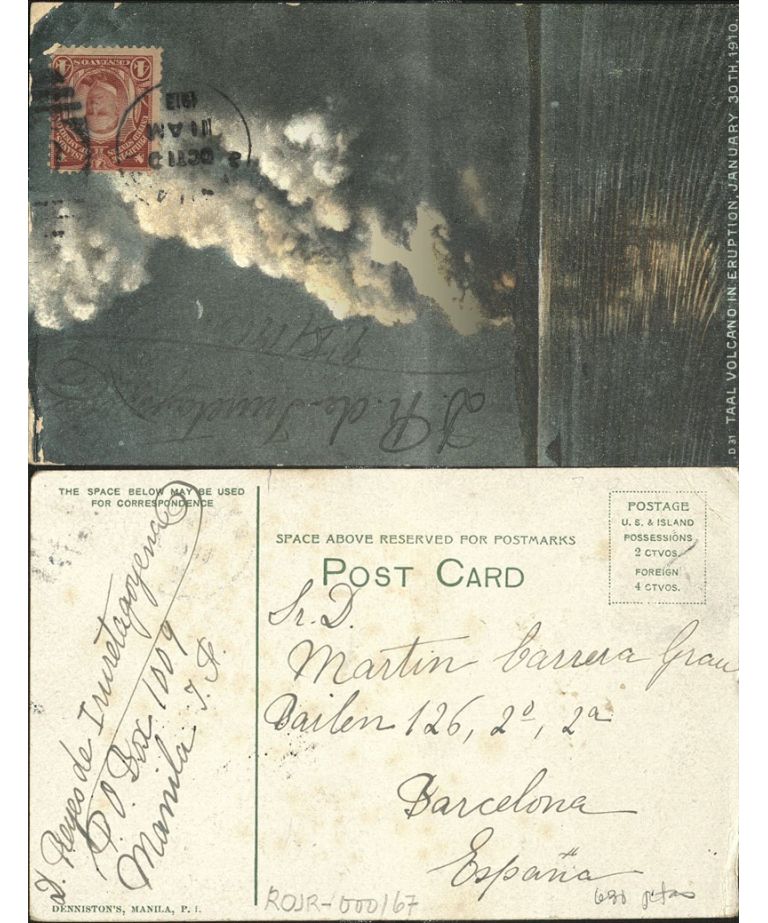 4 CENTAVOS 4
PHILIPPINE ISLANDS
UNITED STATES OF AMERICA
OCT 10
11 AM
1913
J. R. de Iruretagoyena
D 31 TAAL VOLCANO IN ERUPTION, JANUARY 30TH, 1910.
THE SPACE BELOW MAY BE USED
FOR CORRESPONDENCE
J. Reyes de Iruretagoyena
P.O. Box 1009
Manila I. F.
DENNISTON'S, MANILA, P. I.
SPACE ABOVE RESERVED FOR POSTMARKS
POST CARD
POSTAGE
U. S. & ISLAND
POSSESSIONS
2 CTVOS.
FOREIGN
4 CTVOS.
Sr. D.
Martin Carrera Grau
Bailen 126, 2º, 2ª
Barcelona
España
ROJR-000167